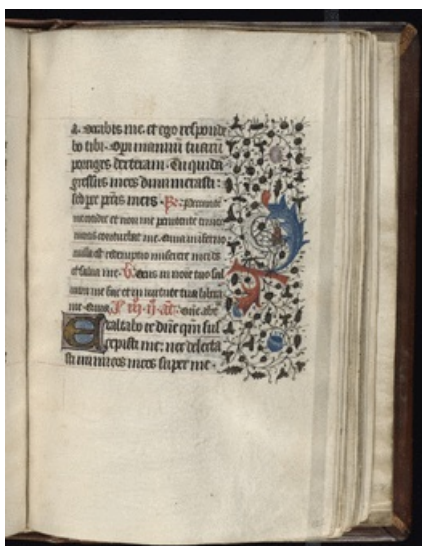 a. vocabis me. et ego responde
bo tibi. Opi manuum tuarum
porriges dexteram. Tu quidē
gressus meos dinumerasti:
sed pce pctis meis. R. peccantē
me cotidie et non me penitente timor
mortis conturbat me. Quia in inferno
nulla est redemptio miserere mei ds
et salua me. V. deus in noīe tuo sal
uum me fac et in uirtute tua libera
me. Quia.
Exaltabo te dn̄e qm̄ sus
cepisti me: nec delecta
sti inimicos meos super me.